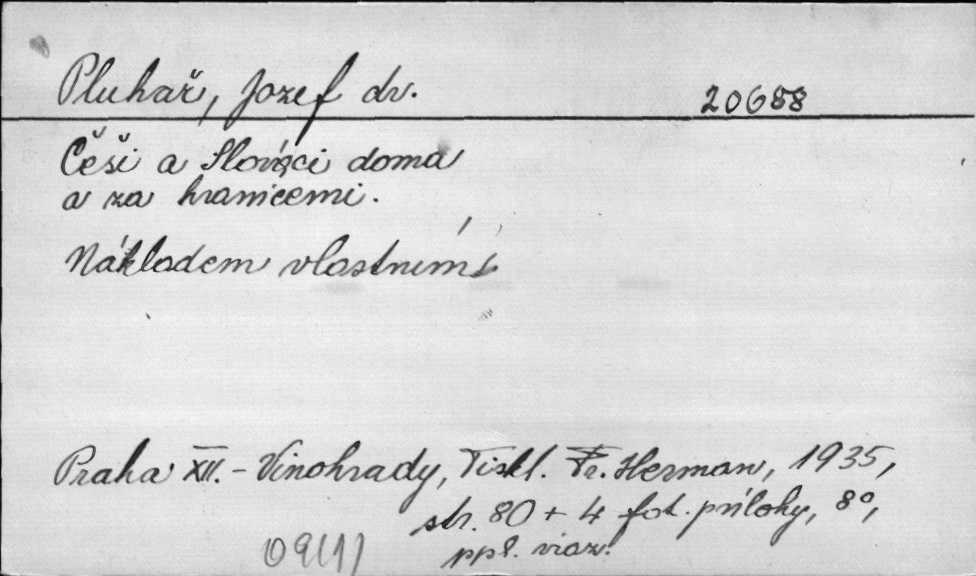 Pluhař, Jozef dr.
20658
Češi a Slováci doma
a za hranicemi.
Nákladem vlastním
Praha XII. - Vinohrady, Tiskl. Fr. Herman, 1935,
str. 80 + 4 fot. prílohy, 8°,
ppl. viaz.